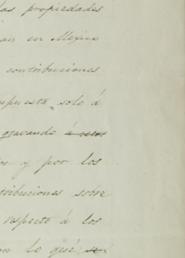 las propiedades
en Mexico
contribuciones
impuesto, solo á
gravando á
y por los
tribuciones sobre
respecto á los
lo que